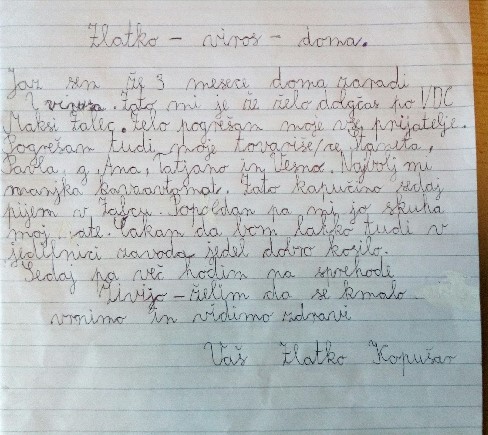 Zlatko - viros - doma.
Jaz sem že 3 mesece doma zaradi
virusa. Zato mi je že zelo dolgčas po VDC
Maksi Žalec. Zelo pogrešam moje vse prijatelje.
Pogrešam tudi moje tovarišice, Žaneta,
Pavla, g. Ana, Tatjano in Vesno. Najbolj mi
manjka kavaavtomat. Zato kapučino sedaj
pijem v Žalcu. Popoldan pa mi jo skuha
moj ate. Čakam da bom lahko tudi v
jedilnici zavoda jedel dobro kosilo.
Sedaj pa več hodim na sprehode
Živijo - želim da se kmalo
vrnimo in vidimo zdravi
Vaš Zlatko Kopušar